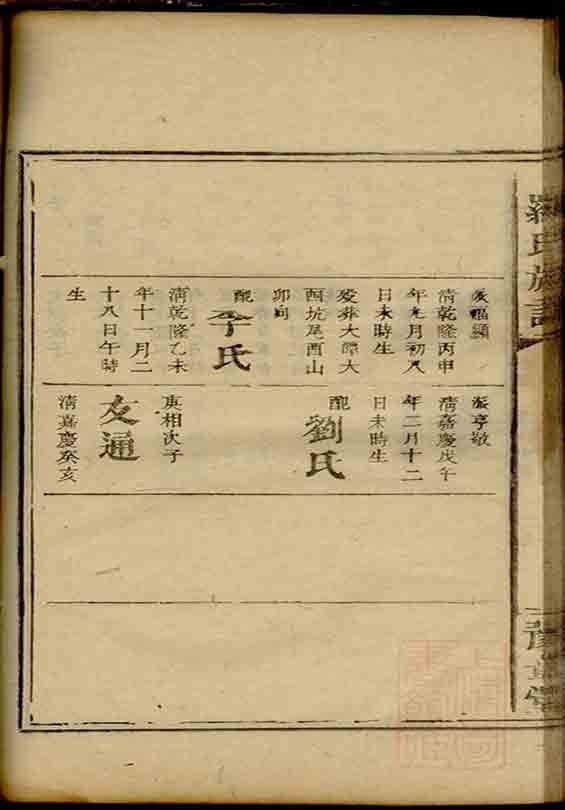 羅氏族譜
豫章堂
福顯
清乾隆丙申
年九月初八
日未時生
歿葬大譚大
坑尾酉山
卯向
配李氏
清乾隆乙未
年十一月二
十八日午時
生
亨敬
清嘉慶戊午
年二月十二
日未時生
配劉氏
庚相次子
友通
清嘉慶癸亥